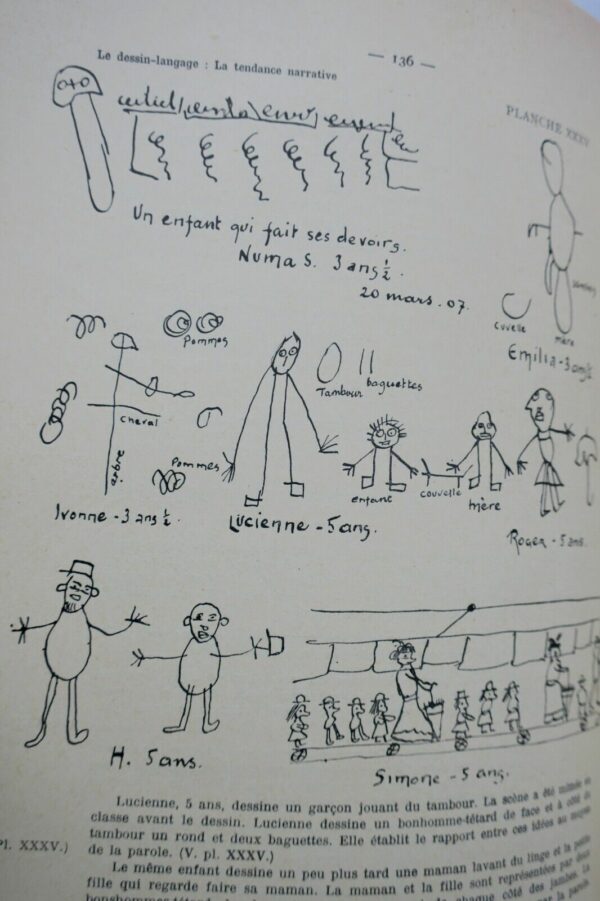 — 136 —
Le dessin-langage : La tendance narrative
PLANCHE XXXV
Un enfant qui fait ses devoirs.
Numa S. 3 ans ½.
20 mars. 07.
cuvelle
mère
Emilia - 3 ans ½
Pommes
cheval
arbre
Pommes
Ivonne - 3 ans ½.
Tambour
baguettes
enfant
couvelle
mère
Lucienne - 5 ans.
Roger - 5 ans.
H. 5 ans.
Simone - 5 ans.
Lucienne, 5 ans, dessine un garçon jouant du tambour. La scène a été mimée en
classe avant le dessin. Lucienne dessine un bonhomme-têtard de face et à côté du
tambour un rond et deux baguettes. Elle établit le rapport entre ces idées au moyen
Pl. XXXV.)
de la parole. (V. pl. XXXV.)
Le même enfant dessine un peu plus tard une maman lavant du linge et la petite
fille qui regarde faire sa maman. La maman et la fille sont représentées par deux
chaque côté des jambes. La